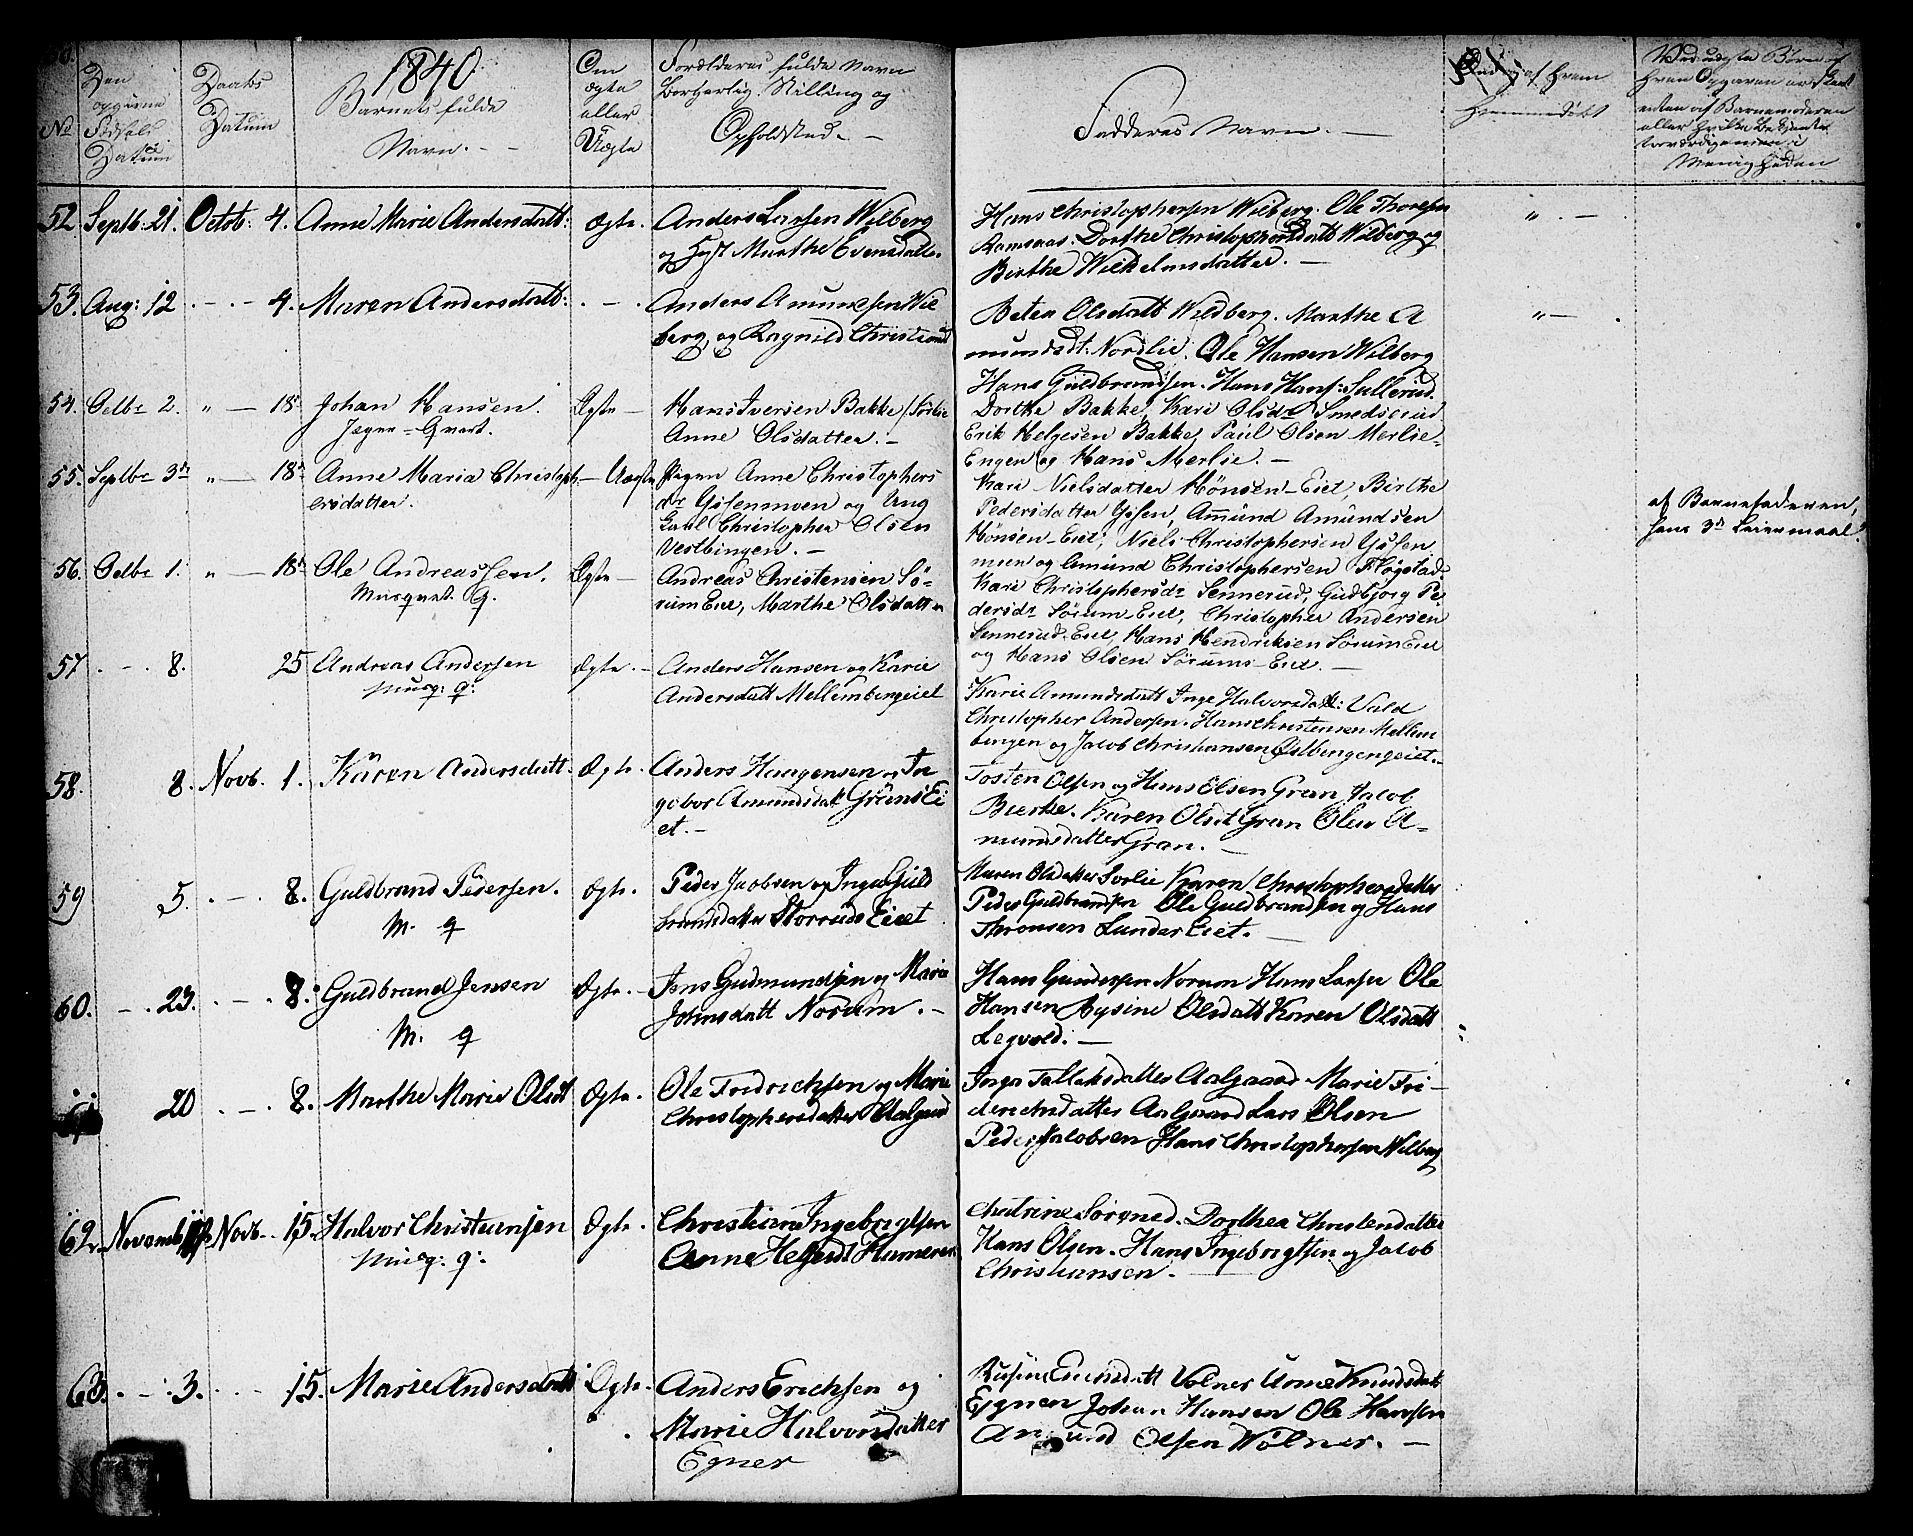 1840
No
Den opgivne Fødsels Datum
Daabs Datum
Barnets fulde Navn. -
Om ægte eller Uægte
Forældrenes fulde Navn Borgerlig Stilling og Opholdsted. -
Faddernes Navn. -
af hvem Hjemmedøbt
Ved uægte Børn af hvem Opgaven
enten af Barnemoderen
eller hvilke bekjendte
troværdige i
Menigheden
52 Septb: 21. Octob: 4. Anne Marie Andersdatt: Ægte. Anders Larsen Wilberg
og Hust Marthe Evensdatter
Hans Christophersen Wilberg. Ole Thoresen
Ramsaas. Dorthe Christophersdatt Wilberg og
Birthe Wilhelmsdatter. -
53. Aug: 12 - 4. Maren Andersdatt: - Anders Amundsen Wil
berg, og Ragnild Christiansd
Beten Olsdatt Wilberg. Marthe A
mundsdt: Nordlie. Ole Hansen Wilberg
Hans Guldbrandsen. Hans Hans: Sullerud.
54. Octbr 2. " - 18. Johan Hansen. Ægte - Hans Iversen Bakke / Sørlie
Jæger-Qvart. Anne Olsdatter. -
Dorthe Bakke, Kari Olsdr Smedsrud
Erik Helgesen Bakke, Paul Olsen Merlie-
Engen og Hans Merlie. -
55. Septbr 3die " - 18. Anne Maria Christoph- Uægte Pigen Anne Christophers
ersdatter. dr Gisenmoen og Ung
Karl Christopher Olsen
Vestbingen. -
Kari Nielsdatter Hønsen-Eiet, Birthe
Pedersdatter Gisen, Amund Amundsen
Hønsen-Eiet, Niels Christophersen Gisen
moen og Amund Christophersen Flogstad.
af Barnefaderen,
hans 3die Leiermaal.
56. Octbr 1. " - 18. Ole Andreassen. Ægte - Andreas Christensen Sø-
Musquet. q. rum Eiet, Marthe Olsdatter
Kari Christophersdr Sennerud, Gudbjorg Pe
dersdr Sørum-Eiet, Christopher Andersen
Sennerud-Eiet, Hans Hendriksen Sørum Eiet
og Hans Olsen Sørums-Eiet. -
57 - 8. 25 Andreas Andersen Ægte. - Anders Hansen og Karie
Musq: q: Andersdatt Mellembengeiet
Karie Amundsdatt Inge Halvorsdatt: Vald
Christopher Andersen. Hans Christensen Mellem
bengen og Jacob Christiansen Østbengengeiet. -
58. 8. Novb. 1. Karen Andersdatt. Ægte. Anders Haagensen og In
gebor Amundsdatt Grans Ei
et. -
Tosten Olsen og Hans Olsen Gran Jacob
Bierke. Karen Olsdt Gran Olea A-
mundsdatter Gran. -
59 5. - 8. Guldbrand Pedersen. Ægte. Peder Jacobsen og Inger Guld
M. q brandsdatter Storruds Eiet
Maren Olsdatter Sørlie Karen Christophersdatter
Peder Guldbrandsen Ole Guldbrandsen og Hans
Thronsen Lunder Eiet. -
60. - 23. - 8. Guldbrand Jensen Ægte. - Jens Gudmundsen og Marie
M. q Johnsdatt Norum. -
Hans Gundersen Norum Hans Larsen Ole
Hansen Aysine Olsdatt Karen Olsdatt
Legvold. -
61 20 - 8. Marthe Marie Olsdt Ægte. Ole Fridrichsen og Marie
Christophersdatter Aalgaard
Inger Tallaksdatter Aalgaard Marie Fri-
derichsdatter Aalgaard Lars Olsen
Peder Jacobsen Hans Christophersen Wilberg
62. Novemb Novb. 15. Halvor Christiansen Ægte. Christian Ingebrigtsen
Musq: q: Anne Helgesdt Hameren
Chatrine Sørgned. Dorthea Christensdatter
Hans Olsen. Hans Ingebrigtsen og Jacob
Christiansen. -
63. - 3. - 15. Marie Andersdatt Ægte. Anders Erichsen og
Marie Halvorsdatter
Egner
Evensdatt Volner Anne Knudsdatt
Egnen Johan Hansen Ole Hansen
Amund Olsen Wolner. -